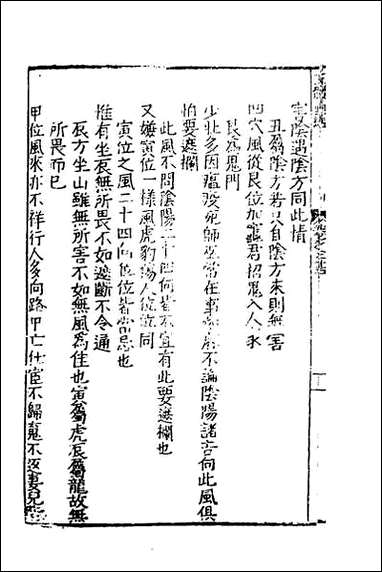 宫陰遇陰方同此情
丑爲陰方若只自陰方來則無害
四穴風從艮位加竈君招鬼入人家
艮爲鬼門
少壯多因瘟疫死師巫常在事不論陰陽諸吉向此風俱
怕要遮欄
此風不問陰陽二十四向皆不宜有此要遮欄也
又嫌寅位一樣風虎豹傷人位位同
寅位之風二十四向位位皆當忌也
惟有坐辰無所畏不如遮斷不令通
辰方坐山雖無所害不如無風爲佳也寅屬虎辰屬龍故無
所畏而已
甲位風來亦不祥行人多向路甲亡仕宦不歸鬼不返妻兒